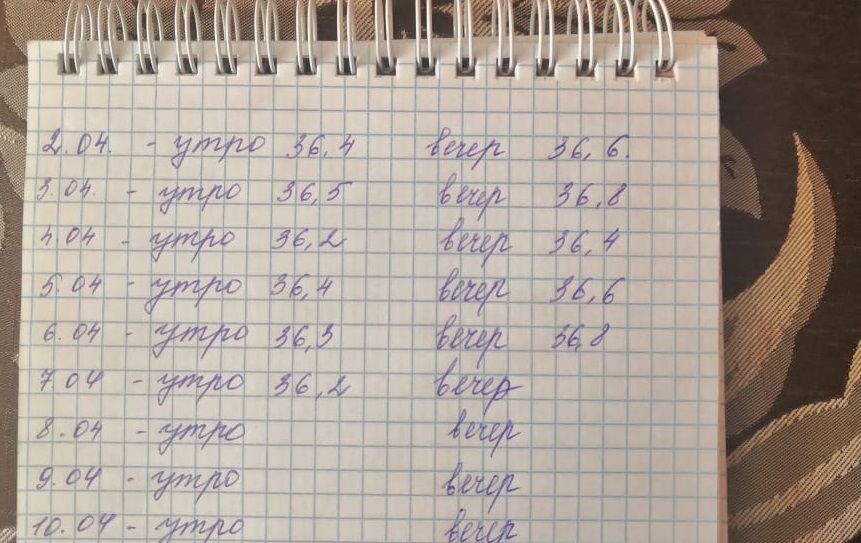 2.04. - утро 36,4 вечер 36,6.
3.04. - утро 36,5 вечер 36,8
4.04 - утро 36,2 вечер 36,4
5.04 - утро 36,4 вечер 36,6
6.04 - утро 36,3 вечер 36,8
7.04 - утро 36,2 вечер
8.04 - утро вечер
9.04 - утро вечер
10.04 - утро вечер